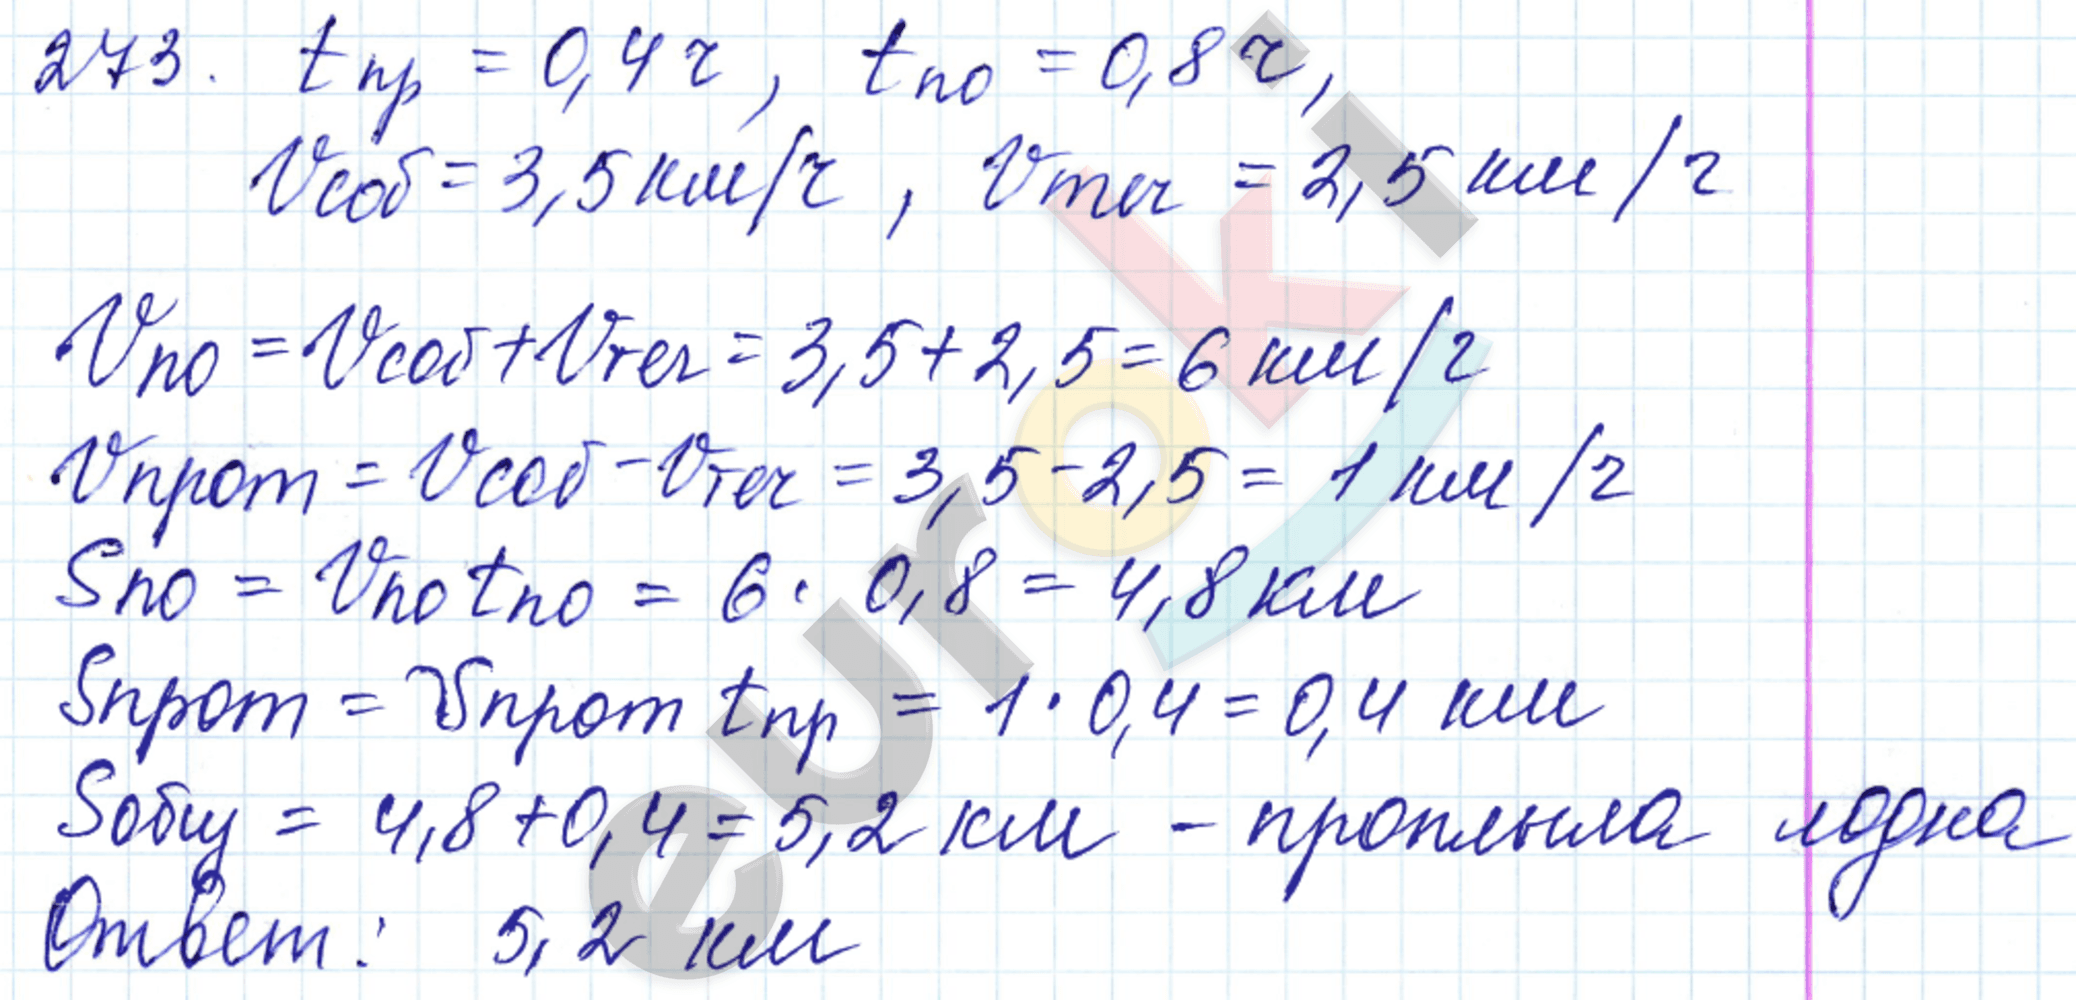 273. tпр = 0,4 ч, tпо = 0,8 ч,
Vсоб = 3,5 км/ч, Vтеч = 2,5 км/ч
Vпо = Vсоб + Vтеч = 3,5 + 2,5 = 6 км/ч
Vпрот = Vсоб - Vтеч = 3,5 - 2,5 = 1 км/ч
Sпо = Vпо tпо = 6 · 0,8 = 4,8 км
Sпрот = Vпрот tпр = 1 · 0,4 = 0,4 км
Sобщ = 4,8 + 0,4 = 5,2 км - проплыла лодка
Ответ: 5,2 км
euroki